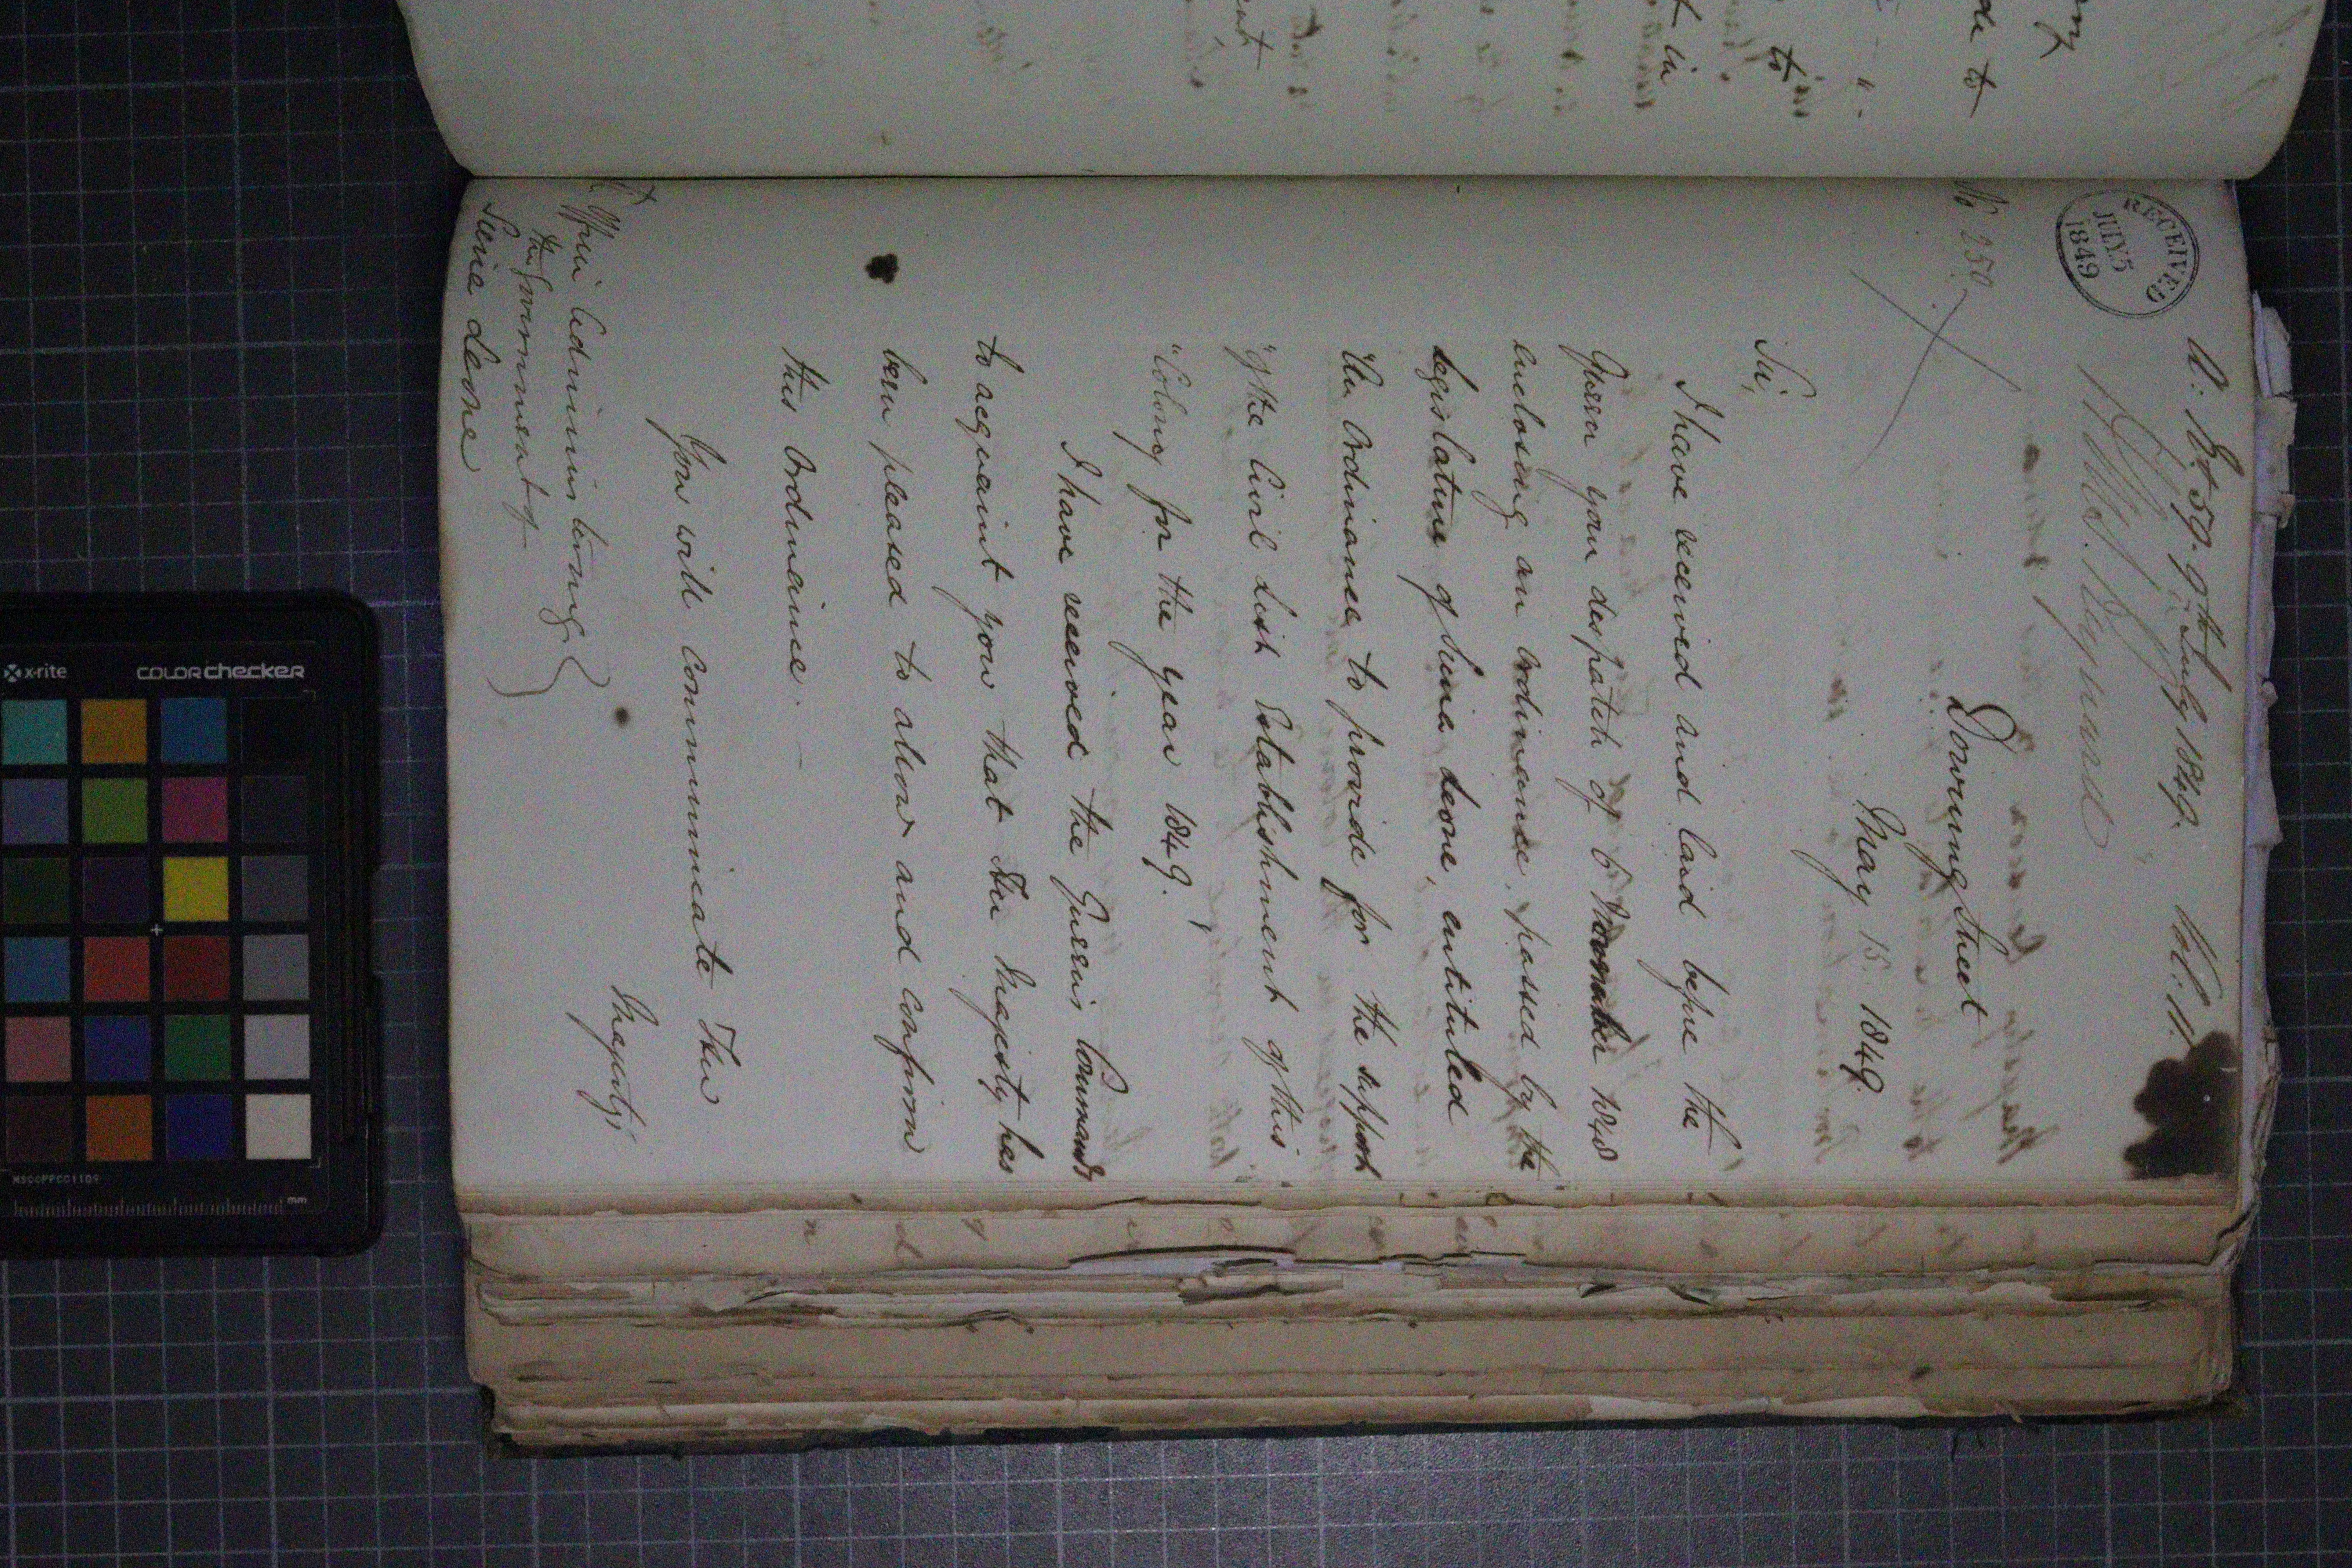 A. 18t. 59. 9th July 1849. Vol. 11.
RECEIVED
JULY 5
1849
No 250
Downing Street
May 15. 1849.
Sir,
I have received and laid before the
Queen your despatch of 6 November 1848
enclosing an ordinance, passed by the
legislature of Sierra Leone, entituled
"An Ordinance to provide for the support
"of the Civil List Establishment of this
"Colony for the year 1849.
I have received the Queen's Commands
to acquaint you that Her Majesty has
been pleased to allow and confirm
this Ordinance.
You will communicate Her
Majesty's
Officer Administering
the Government of
Sierra Leone
x-rite
COLORchecker
MSCCPPCC1109
mm